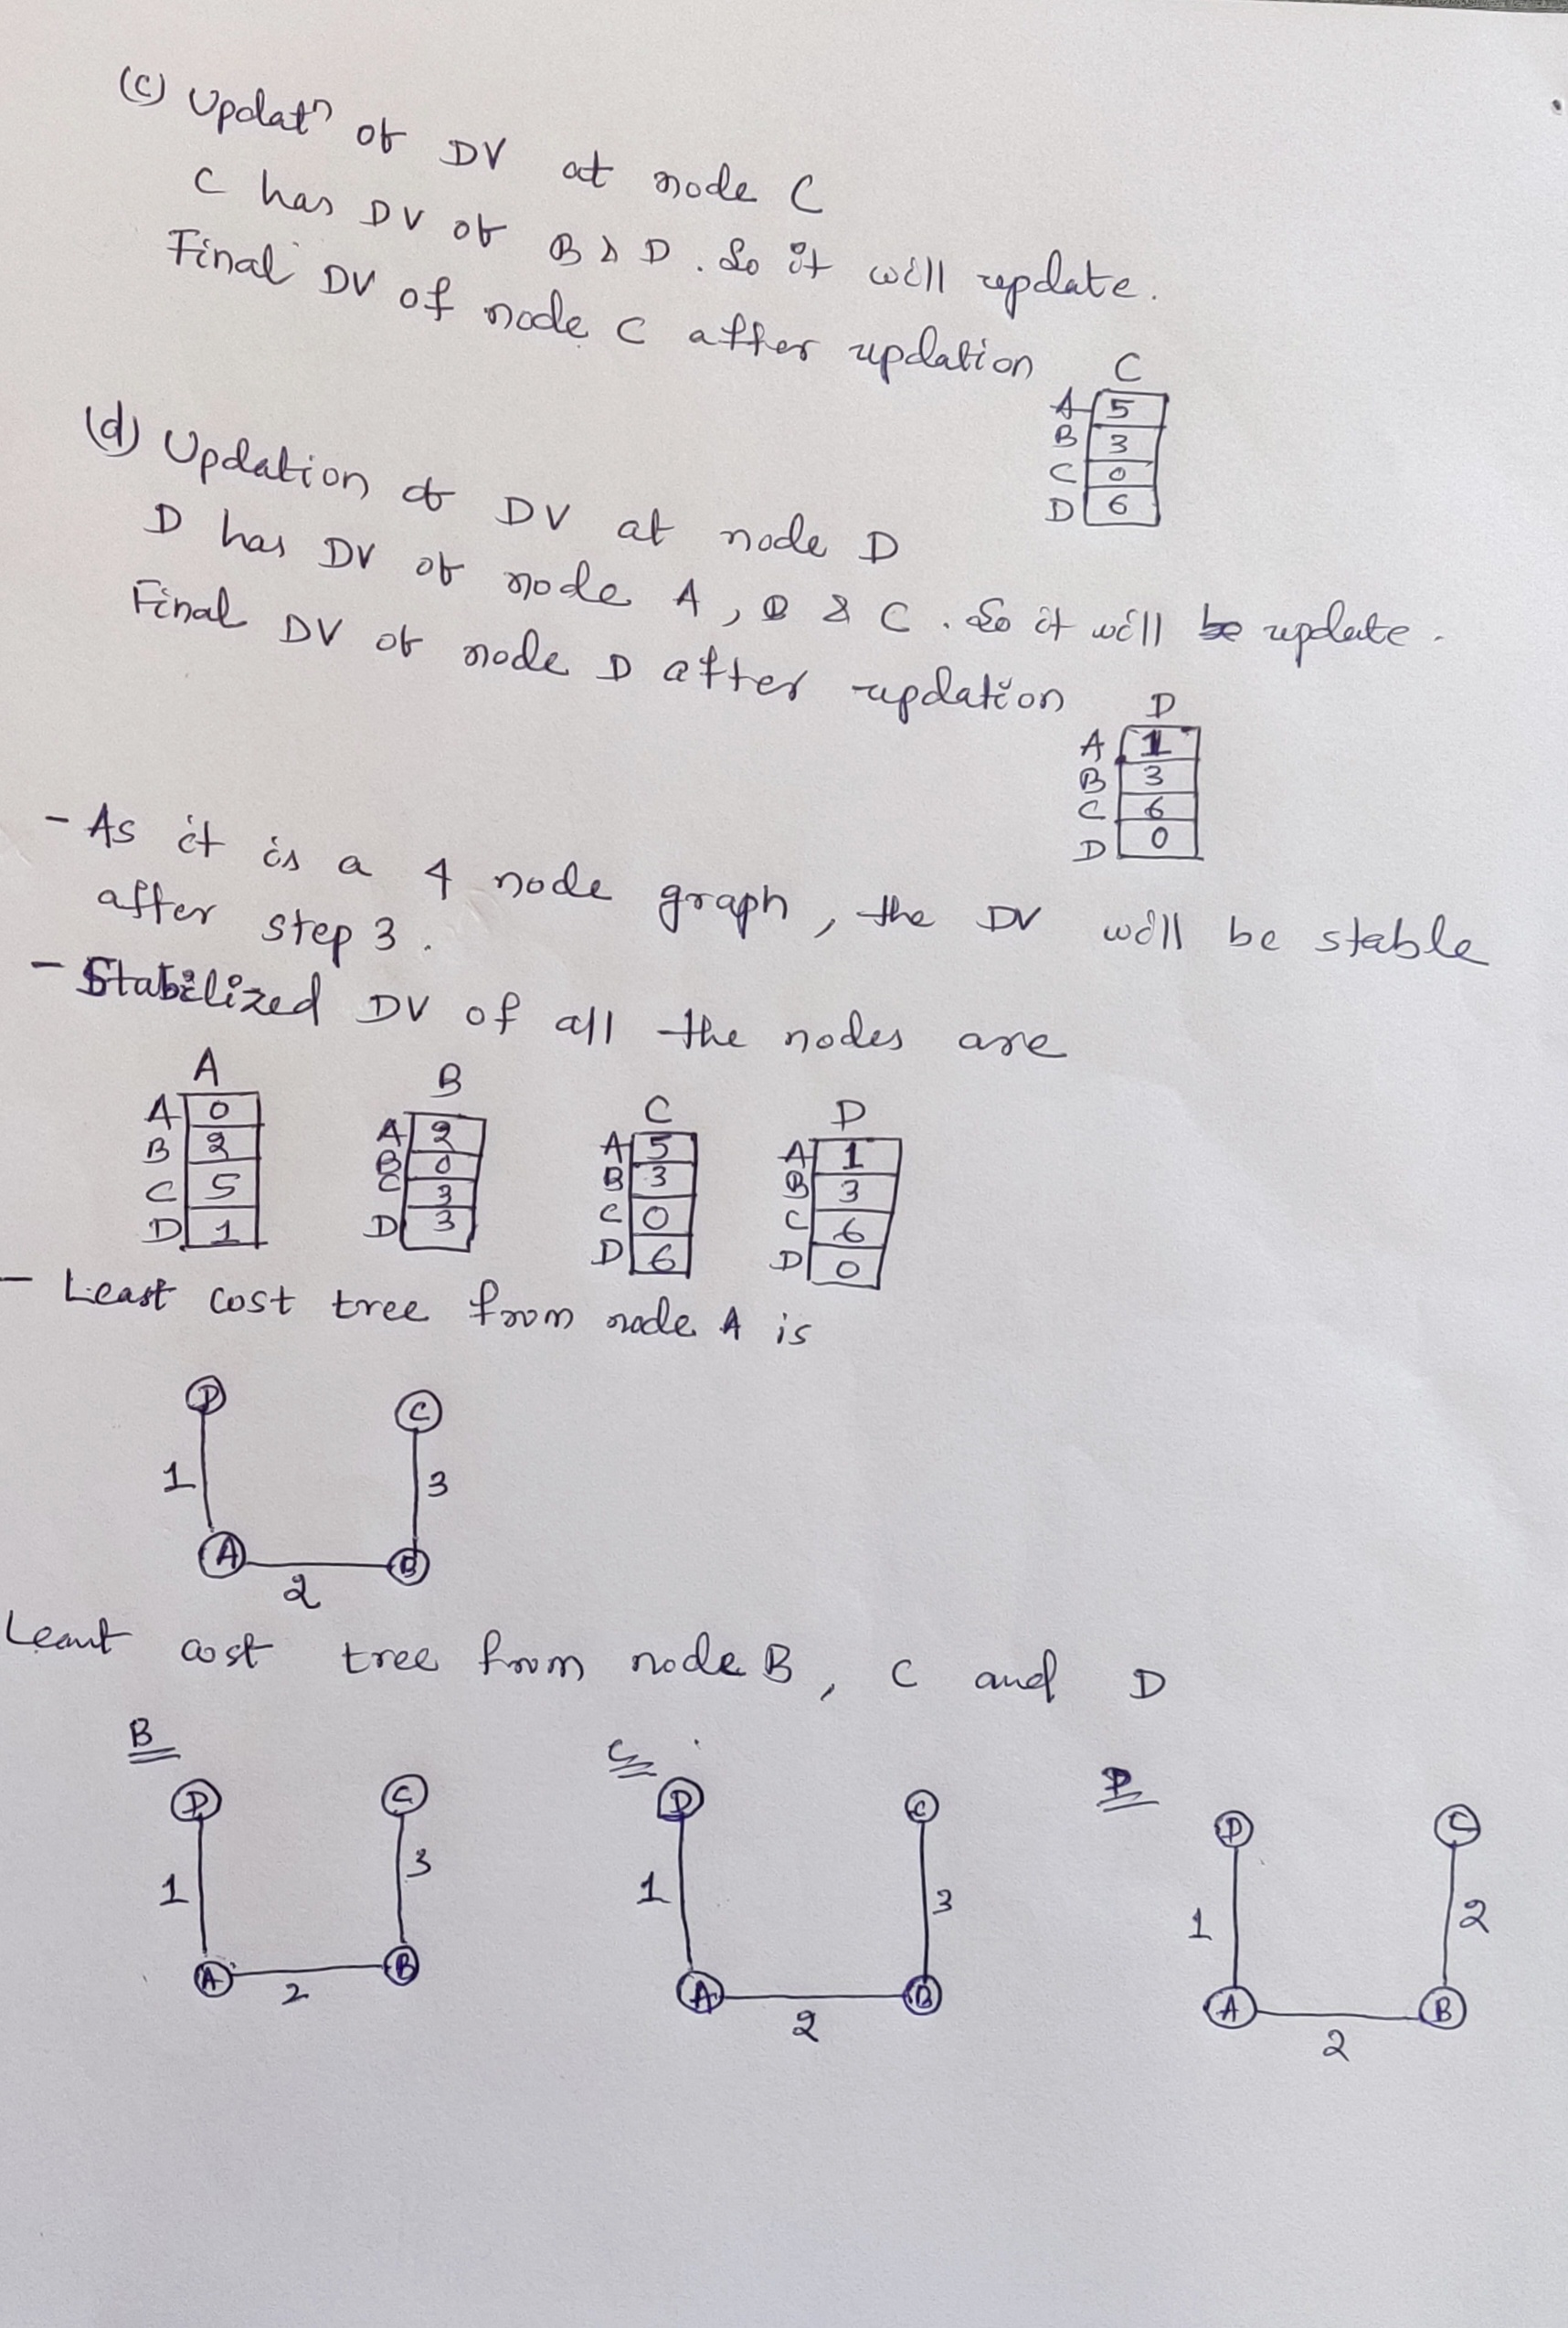 (c) Updatⁿ of DV at node C
C has DV of B & D. So it will update.
Final DV of node C after updation
C
A 5
B 3
C 0
D 6
(d) Updation of DV at node D
D has DV of node A, B & C. So it will be update.
Final DV of node D after updation
D
A 1
B 3
C 6
D 0
- As it is a 4 node graph, the DV will be stable
after step 3.
- Stabilized DV of all the nodes are
A B C D
A 0 A 2 A 5 A 1
B 2 B 0 B 3 B 3
C 5 C 3 C 0 C 6
D 1 D 3 D 6 D 0
- Least cost tree from node A is
D C
1 3
A B
2
Least cost tree from node B, C and D
B C D
D C D C D C
1 3 1 3 1 2
A B A B A B
2 2 2